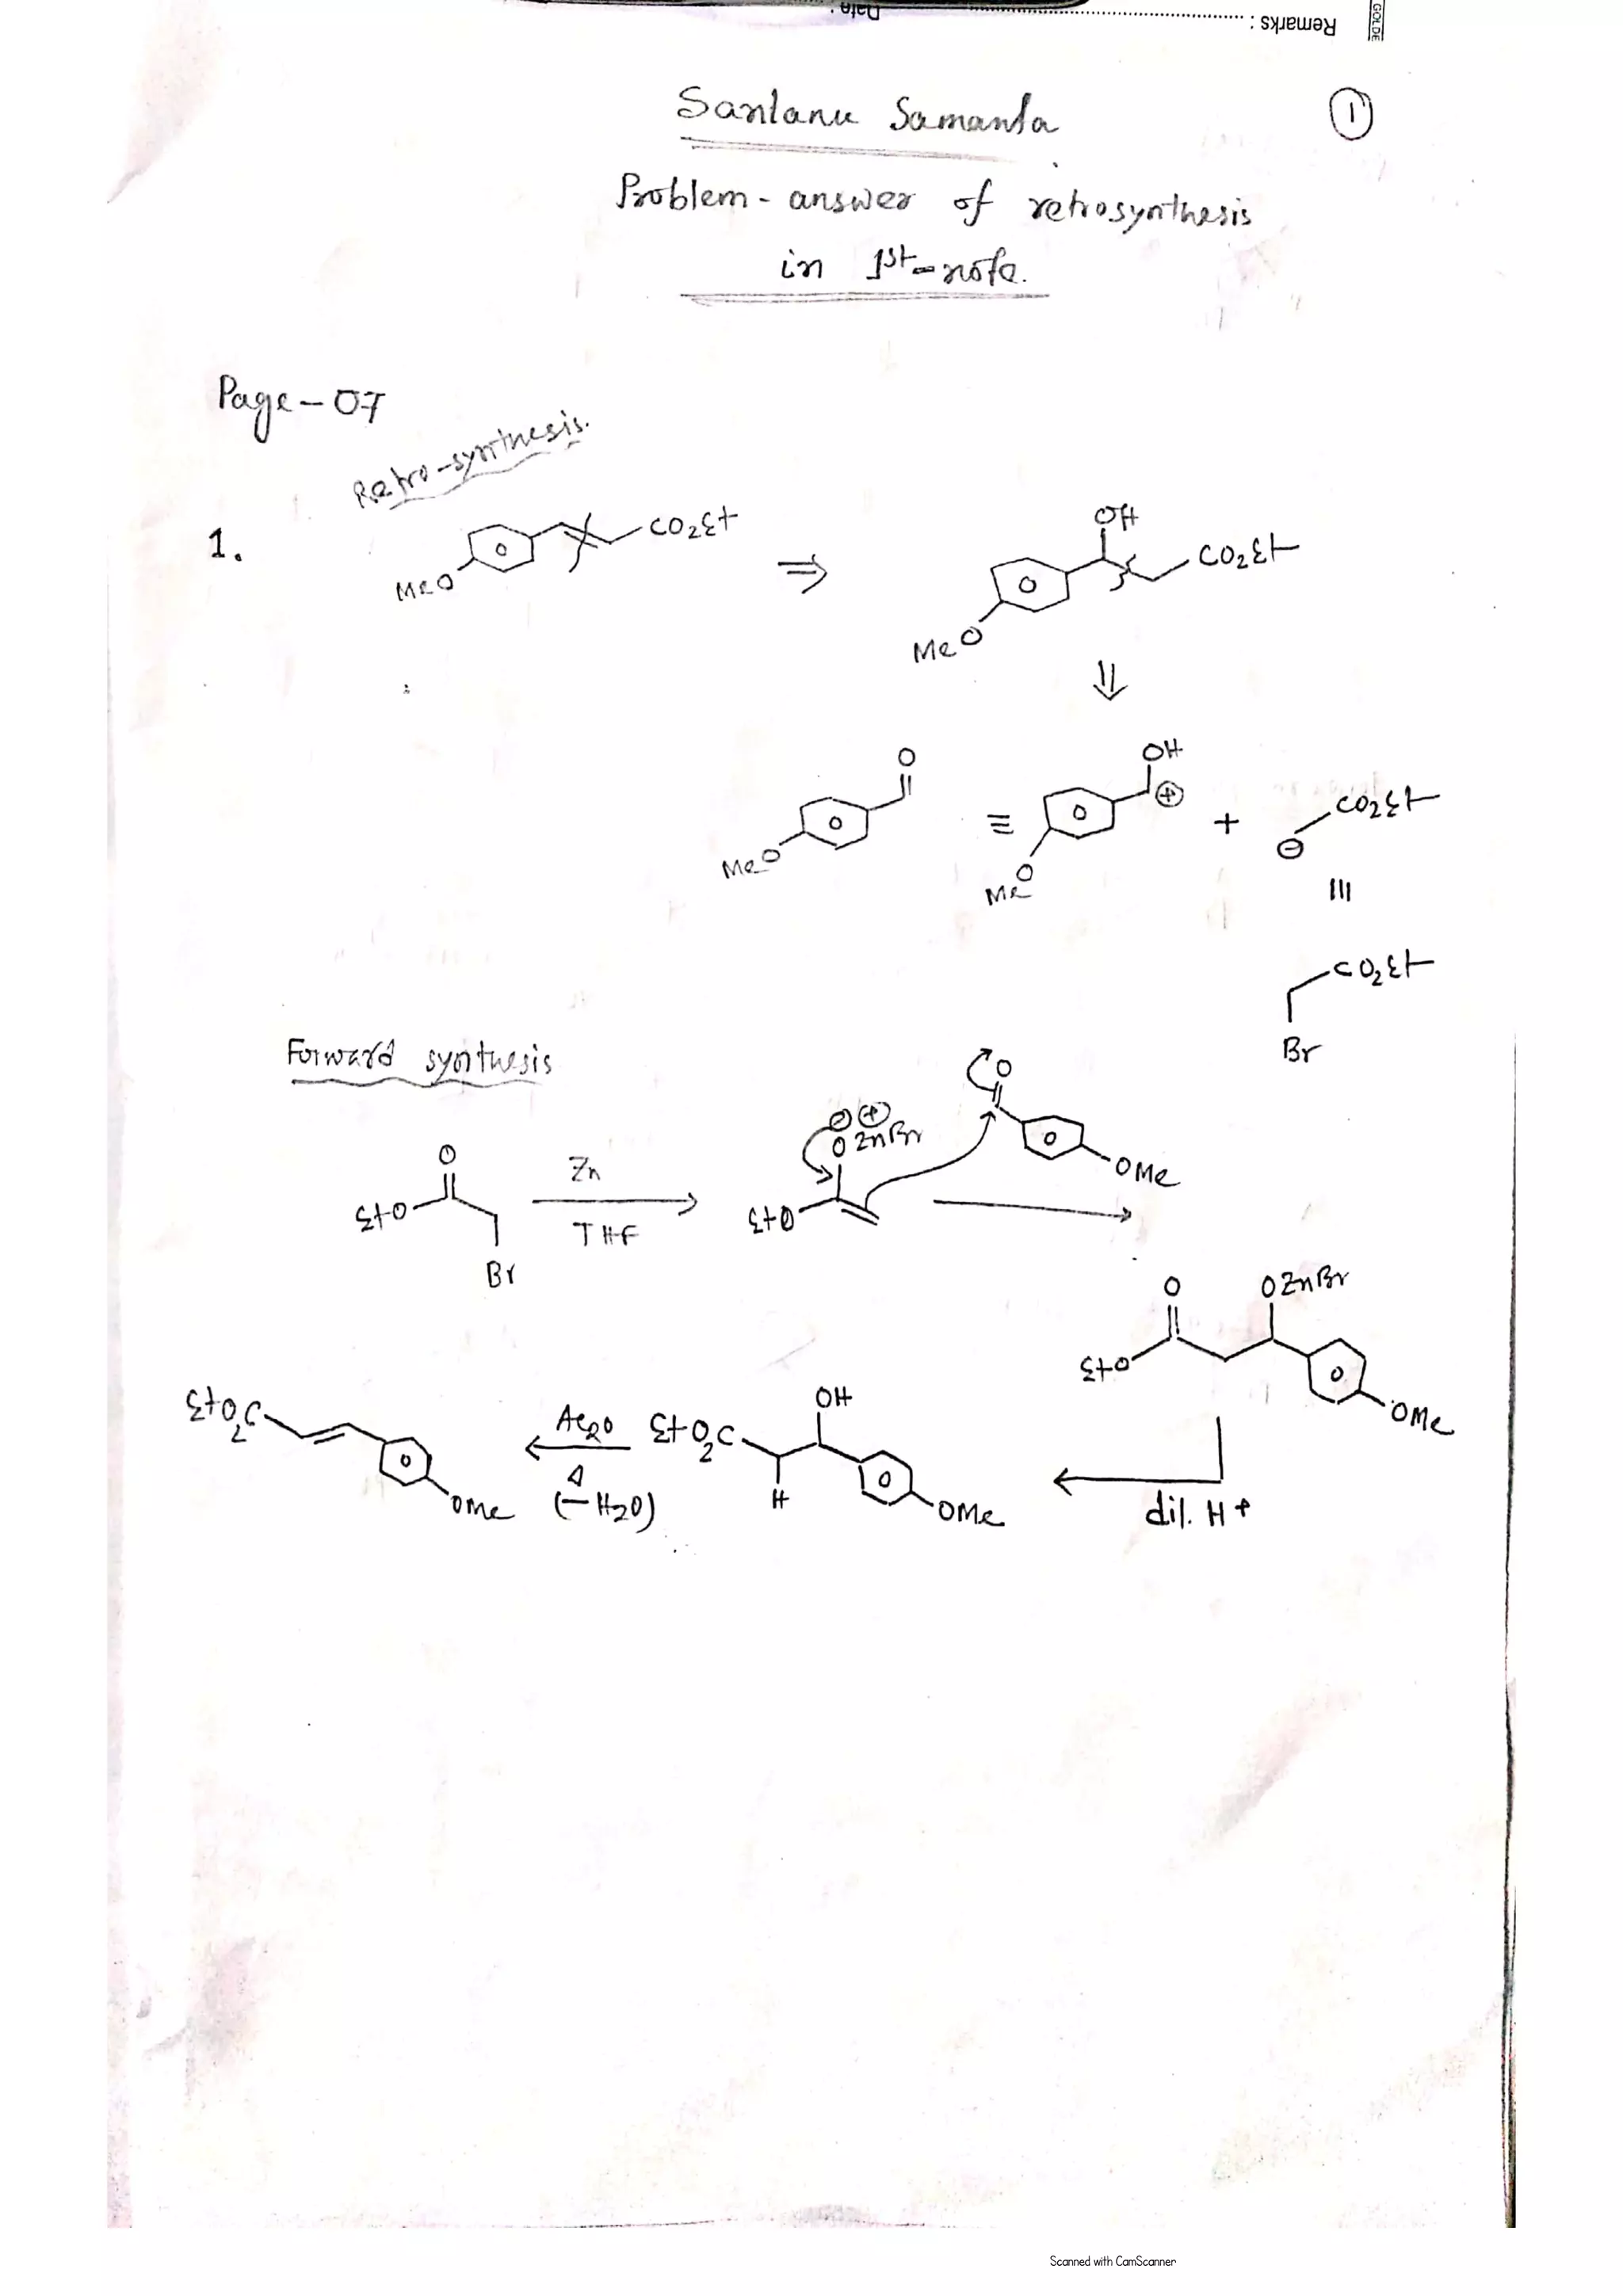 Remarks :
Date :
GOLDE
Santanu Samanta
1
Problem - answer of retrosynthesis
in 1st - note.
Page - 07
Retro-synthesis.
1.
MeO
CO2Et
⇒
OH
CO2Et
MeO
⇓
O
MeO
≡
OH
⊕
MeO
+
⊖
CO2Et
≡
CO2Et
Br
Forward synthesis
EtO
O
Br
Zn
THF
⊖ ⊕
O ZnBr
EtO
O
OMe
O
OZnBr
EtO
OMe
dil. H+
OH
EtO2C
H
OMe
Ac2O
Δ
(- H2O)
EtO2C
OMe
Scanned with CamScanner